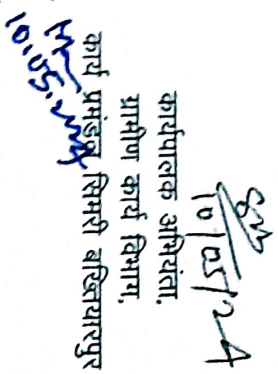 10/05/24
कार्यपालक अभियंता,
ग्रामीण कार्य विभाग,
कार्य प्रमंडल सिमरी बख्तियारपुर
10.05.2024